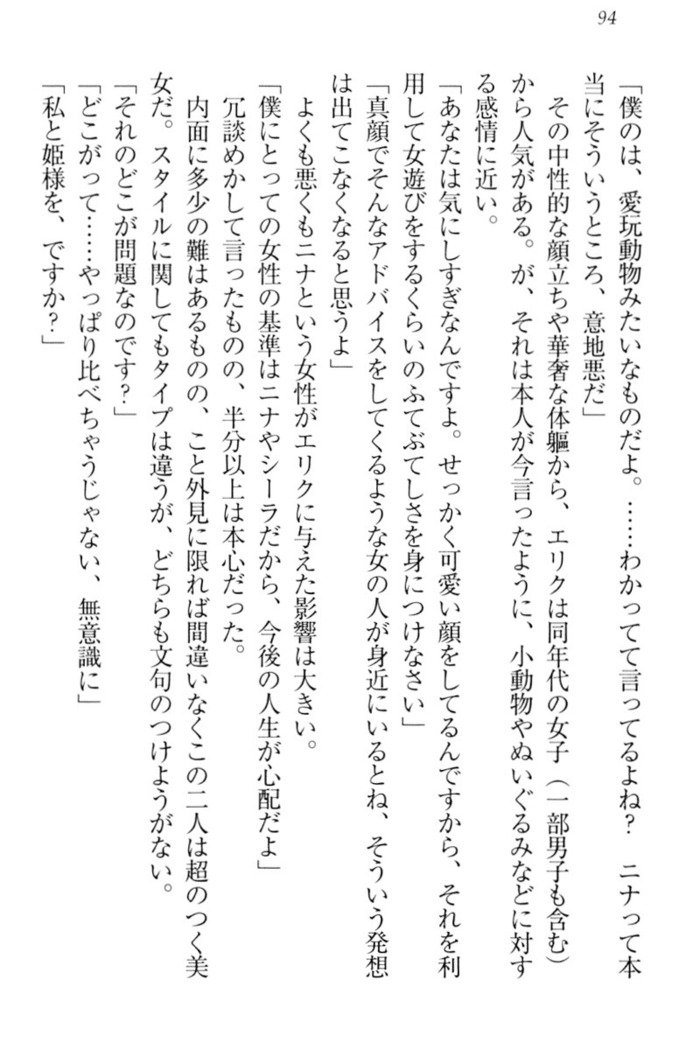 94
「僕のは、愛玩動物みたいなものだよ。……わかってて言ってるよね？　ニナって本
当にそういうところ、意地悪だ」
　その中性的な顔立ちや華奢な体軀から、エリクは同年代の女子（一部男子も含む）
から人気がある。が、それは本人が今言ったように、小動物やぬいぐるみなどに対す
る感情に近い。
「あなたは気にしすぎなんですよ。せっかく可愛い顔をしてるんですから、それを利
用して女遊びをするくらいのふてぶてしさを身につけなさい」
「真顔でそんなアドバイスをしてくるような女の人が身近にいるとね、そういう発想
は出てこなくなると思うよ」
　よくも悪くもニナという女性がエリクに与えた影響は大きい。
「僕にとっての女性の基準はニナやシーラだから、今後の人生が心配だよ」
　冗談めかして言ったものの、半分以上は本心だった。
　内面に多少の難はあるものの、こと外見に限れば間違いなくこの二人は超のつく美
女だ。スタイルに関してもタイプは違うが、どちらも文句のつけようがない。
「それのどこが問題なのです？」
「どこがって……やっぱり比べちゃうじゃない、無意識に」
「私と姫様を、ですか？」